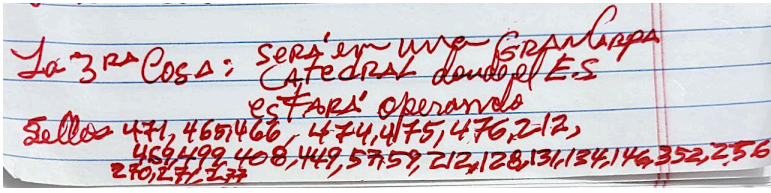 La 3RA Cosa: SERÁ en una GRAN Carpa
CATEDRAL donde el E.S
ESTARÁ operando
Sellos 471, 465, 466, 474, 475, 476, 212,
469, 499, 408, 449, 57, 59, 212, 128, 131, 134, 146, 352, 256
270, 271, 277